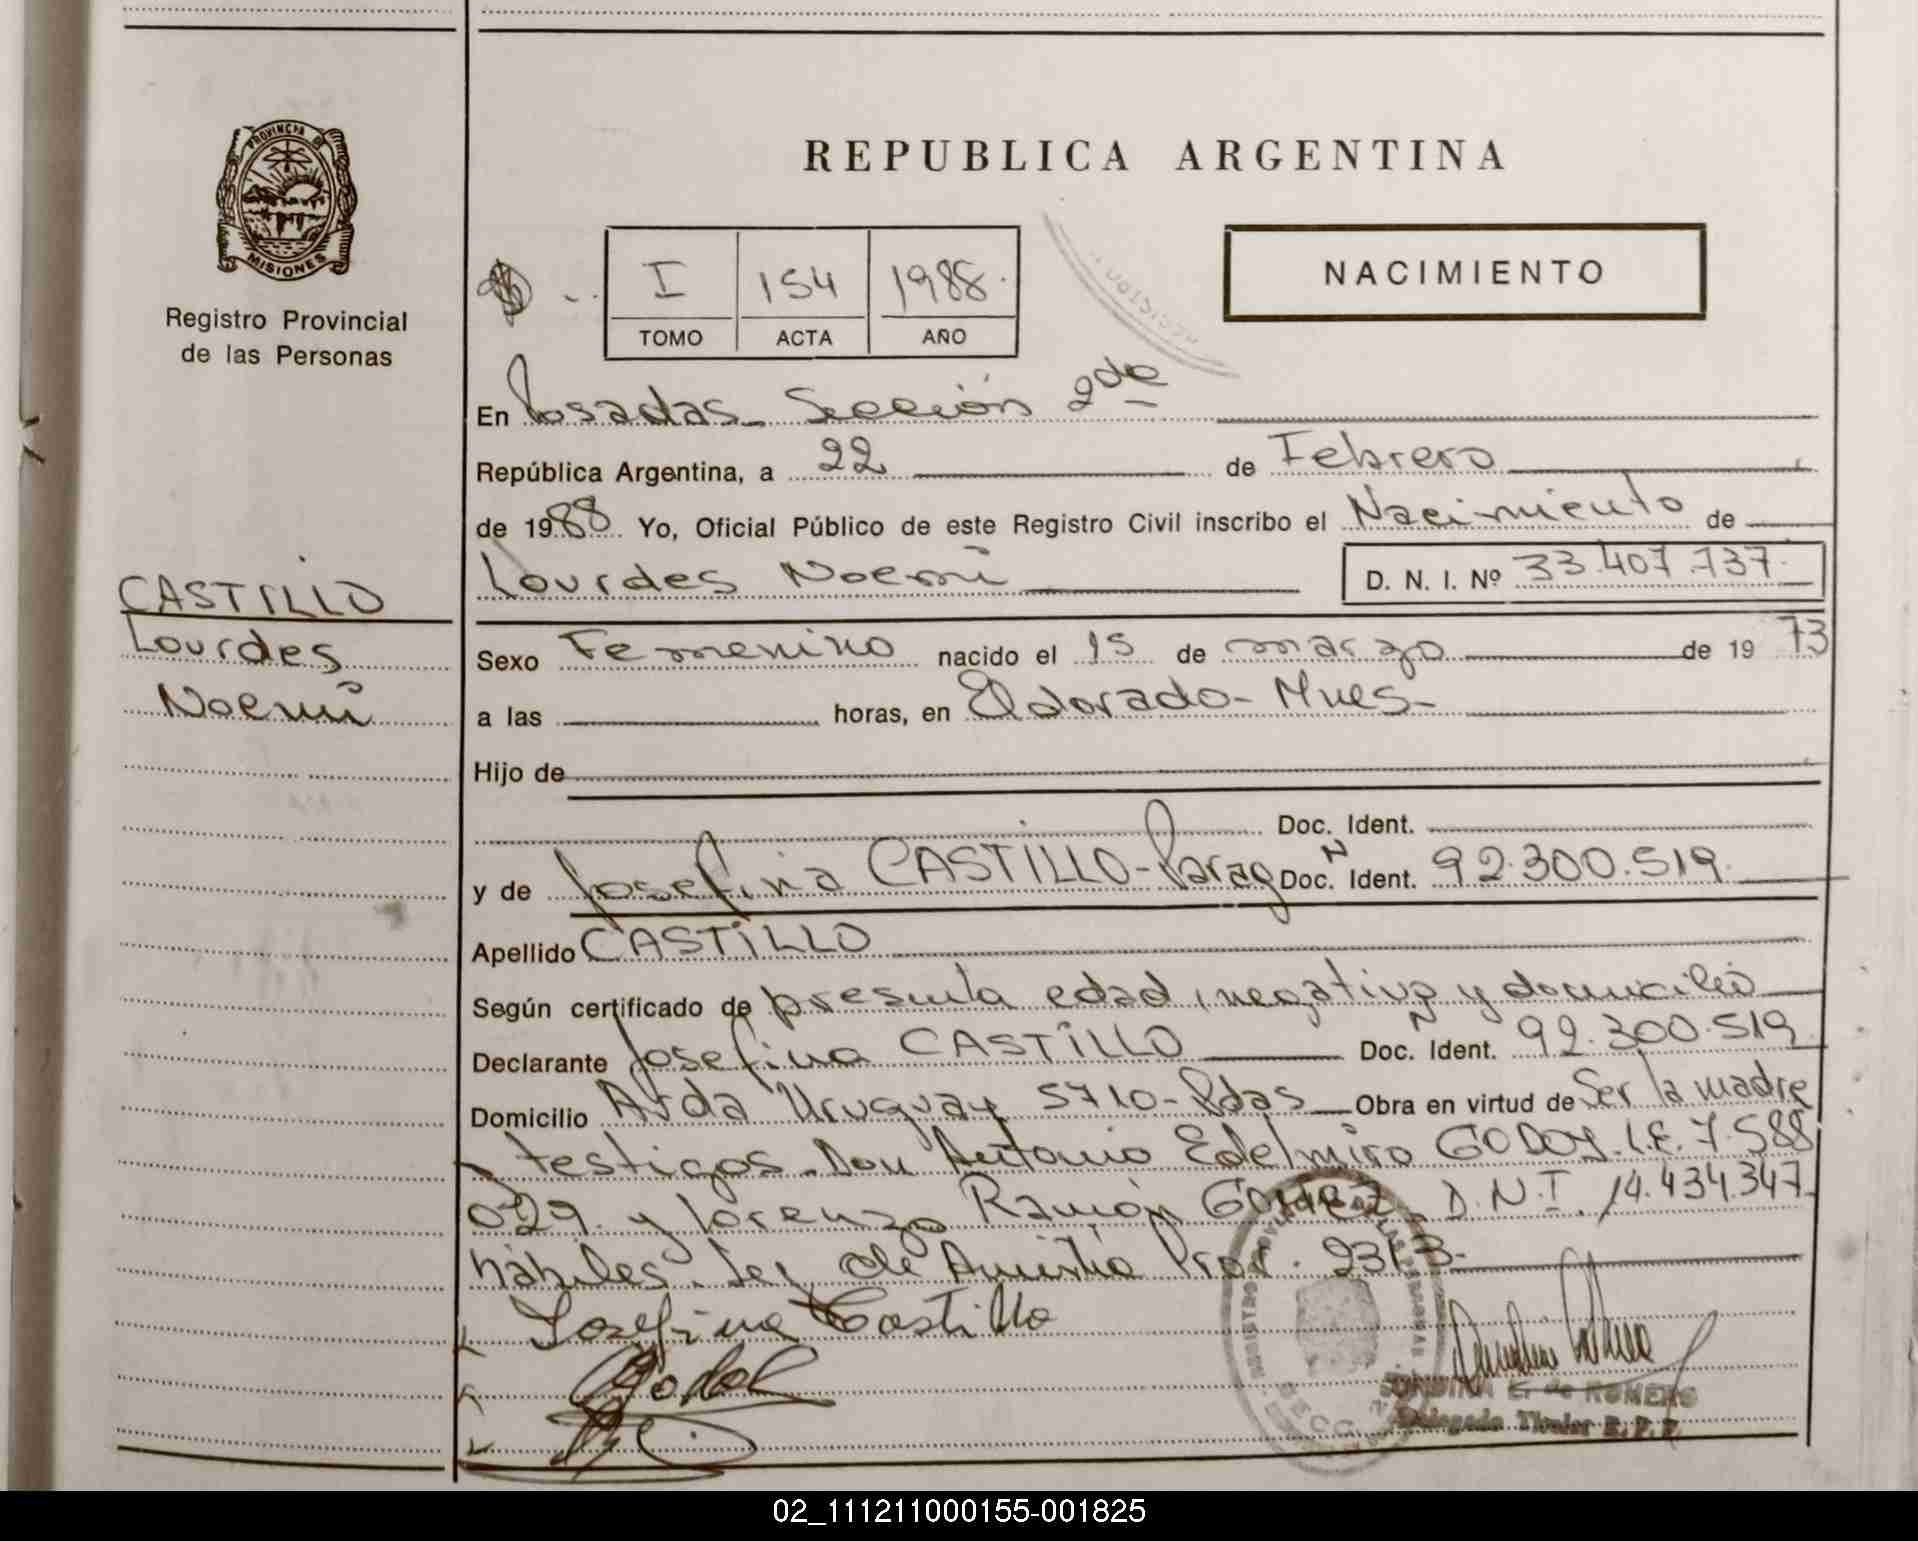 PROVINCIA
MISIONES
Registro Provincial
de las Personas
CASTILLO
Lourdes
Noemi
REPUBLICA ARGENTINA
I 154 1988
TOMO ACTA AÑO
NACIMIENTO
En Posadas - Sección 2da
República Argentina, a 22 de Febrero
de 1988 Yo, Oficial Público de este Registro Civil inscribo el Nacimiento de
Lourdes Noemi D. N. I. Nº 33.407.737
Sexo Femenino nacido el 15 de marzo de 1973
a las horas, en Eldorado - Mnes -
Hijo de
Doc. Ident.
y de Josefina CASTILLO - Parag Doc. Ident. Nº 92.300.519
Apellido CASTILLO
Según certificado de presunta edad, negativo y domicilio
Declarante Josefina CASTILLO Doc. Ident. Nº 92.300.519
Domicilio Avda Uruguay 5710 - Pdas Obra en virtud de Ser la madre
testigos Don Antonio Edelmiro GODOY. L.E. 7.588
029 y Lorenzo Ramón GOMEZ D.N.I. 14.434.347
hábiles. Ley de Amnistia Prov. 2313 -
Josefina Castillo
Godoy
E. de ROMERO
Delegada Titular R. P. P.
02_111211000155-001825